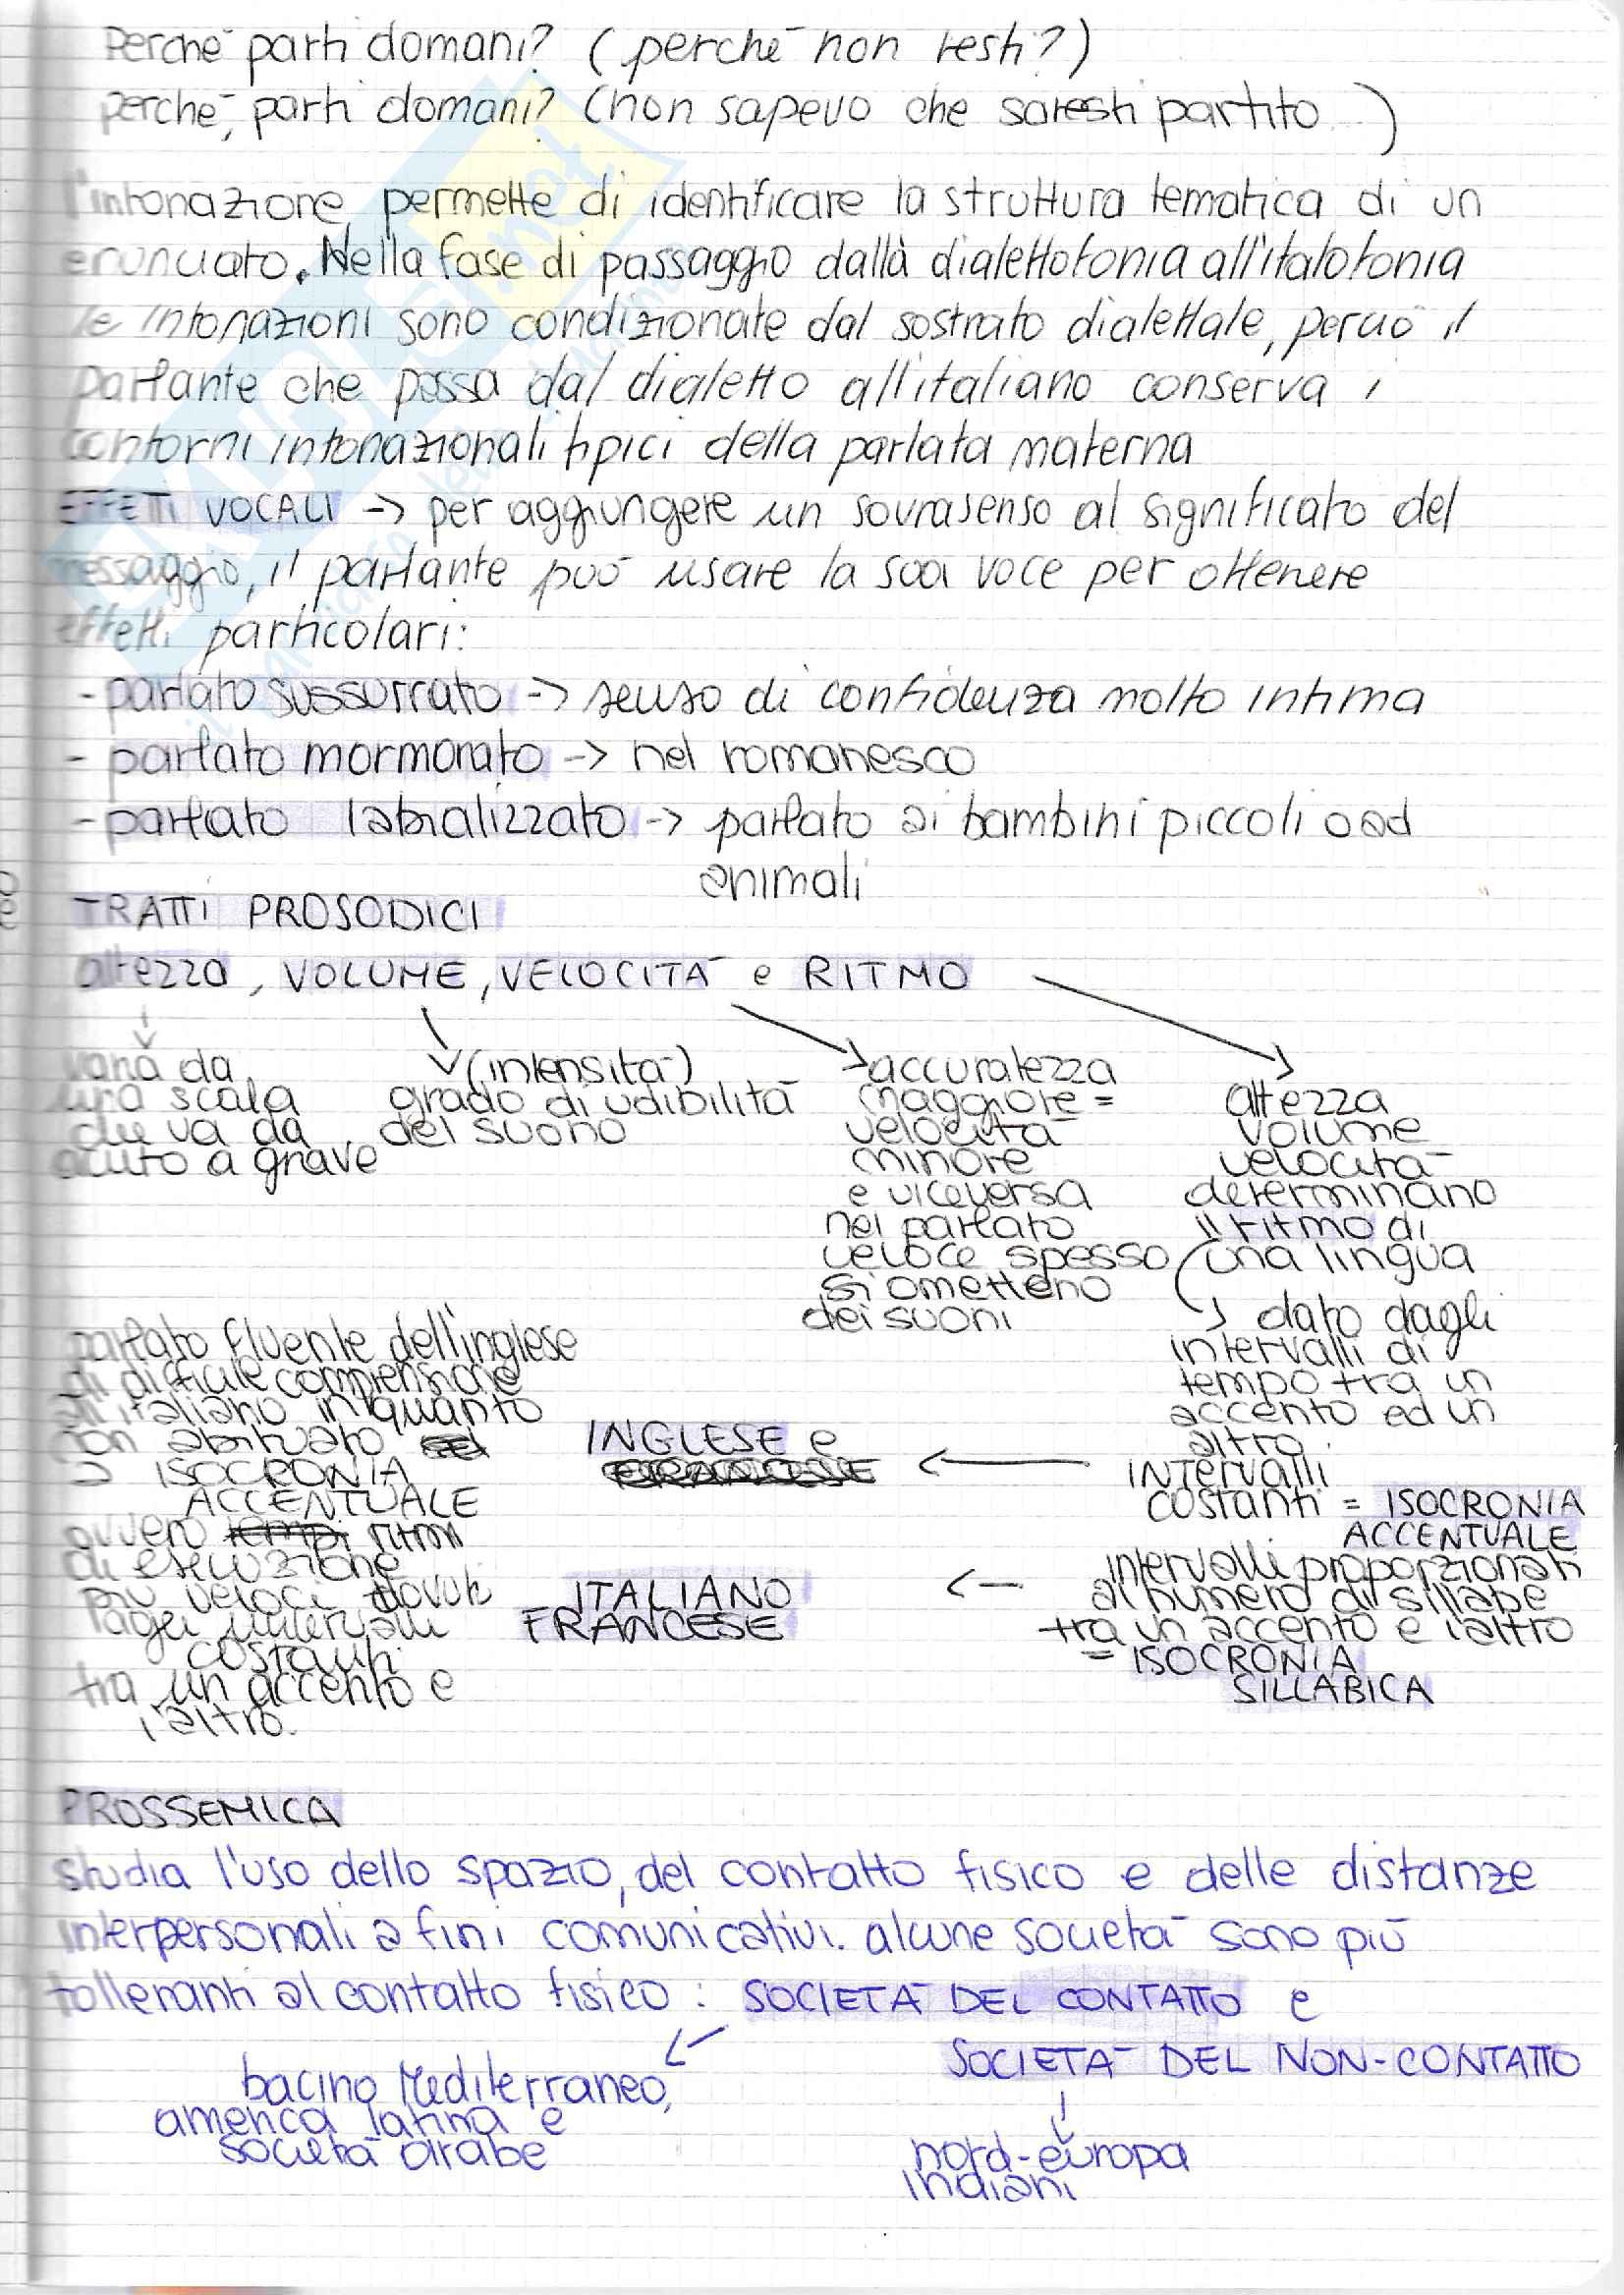 Perché parti domani? (perché non resti?)
perché, parti domani? (non sapevo che saresti partito..)
l'intonazione permette di identificare la struttura tematica di un
enunciato. Nella fase di passaggio dalla dialettofonia all'italofonia
le intonazioni sono condizionate dal sostrato dialettale, perciò il
parlante che passa dal dialetto all'italiano conserva i
contorni intonazionali tipici della parlata materna
EFFETTI VOCALI -> per aggiungere un sovrasenso al significato del
messaggio, il parlante può usare la sua voce per ottenere
effetti particolari:
- parlato sussurrato -> senso di confidenza molto intima
- parlato mormorato -> nel romanesco
- parlato labializzato -> parlato ai bambini piccoli o ad
animali
TRATTI PROSODICI
altezza, VOLUME, VELOCITÀ e RITMO
varia da
una scala
che va da
acuto a grave
(intensità)
grado di udibilità
del suono
accuratezza
maggiore =
velocità
minore
e viceversa
nel parlato
veloce spesso
si omettono
dei suoni
altezza
volume
velocità
determinano
il ritmo di
una lingua
dato dagli
intervalli di
tempo tra un
accento ed un
altro.
INTERVALLI
costanti = ISOCRONIA
ACCENTUALE
INGLESE e
FRANCESE
intervalli proporzionati
al numero di sillabe
tra un accento e l'altro
= ISOCRONIA
SILLABICA
ITALIANO
FRANCESE
parlato fluente dell'inglese
di difficile comprensione
all'italiano in quanto
non abituato
a ISOCRONIA
ACCENTUALE
ovvero tempi ritmi
di esecuzione
più veloci dovuti
agli intervalli
costanti
tra un accento e
l'altro.
PROSSEMICA
studia l'uso dello spazio, del contatto fisico e delle distanze
interpersonali a fini comunicativi. alcune società sono più
tolleranti al contatto fisico : SOCIETÀ DEL CONTATTO e
SOCIETÀ DEL NON-CONTATTO
bacino Mediterraneo,
america latina e
società arabe
nord-europa
indiani